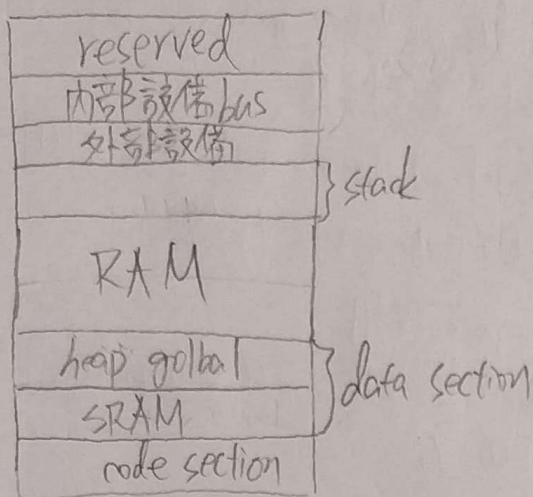 reserved
內部設備bus
外部設備
stack
RAM
heap golbal
data section
SRAM
code section